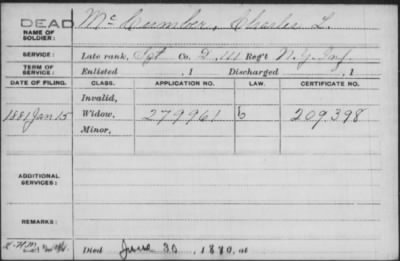 DEAD
NAME OF SOLDIER: McCumber, Charles L.
SERVICE: Late rank, Sgt Co. D, 111 Reg't N.Y. Inf.
TERM OF SERVICE: Enlisted , 1 Discharged , 1
DATE OF FILING. CLASS. APPLICATION NO. LAW. CERTIFICATE NO.
Invalid,
1881 Jan 15 Widow, 279961 209.398
Minor,
ADDITIONAL SERVICES:
REMARKS:
Died June 30, 1880, at